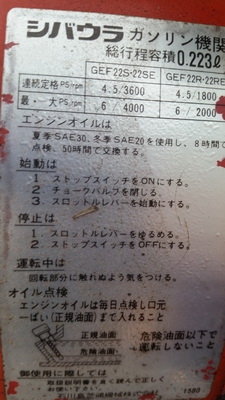 シバウラ ガソリン機関
総行程容積 0.223ℓ
GEF22S-22SE GEF22R-22RE
連続定格PS/rpm 4.5/3600 4.5/1800
最大PS/rpm 6/4000 6/2000
エンジンオイルは
夏季SAE30、冬季SAE20を使用し、8時間で
点検、50時間で交換する。
始動は
1. ストップスイッチをONにする。
2. チョークバルブを閉じる。
3. スロットルレバーを始動にする。
停止は
1. スロットルレバーをゆるめる。
2. ストップスイッチをOFFにする。
運転中は
回転部分に触れぬよう気をつける。
オイル点検
エンジンオイルは毎日点検し口元
一ぱい(正規油面)まで入れること
正規油面
危険油面
危険油面以下で
運転しないこと
使用に際しては
取扱説明書を良く読んで正しく
1580